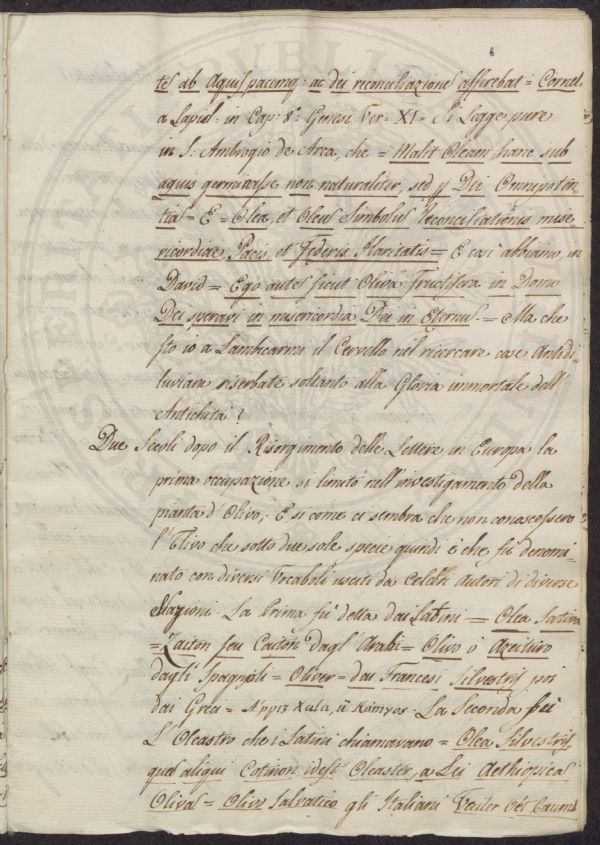 tes ab Aquis pacemq. ac dei reconciliaziones afferebat = Cornel.
a Lapid. in Cap: 8°. Genesi Ver. XI. Si Legge pure
in S. Ambrogio de Arca, che = Malit Oleam hanc sub
aquis germinasse non naturaliter, sed p Dei Omnipoten
tia = E = Olea, et Oleus Simbolus Reconciliationis mise
ricordiae Pacis et Federis Haritatis = E così abbiamo in
David = Ego autes sicut Oliva Fructifera in Domo
Dei speravi in misericordia Dei in Eternus. = Ma che
sto io a Lambicarmi il Cervello nel ricercare cose Antidi-
luviana riserbate soltanto alla Gloria immortale dell'
Antichità?
Due Secoli dopo il Risorgimento delle Lettere in Europa la
prima occupazione si limitò nell'investigamento della
pianta d'Olivo; E si come ci sembra che non conoscessero
l'Ulivo che sotto due sole specie quindi è che fù denomi
nato con diversi Vocaboli usciti da Celebri Autori di diverse
Nazioni. La Prima fù detta dai Latini = Olea Sativa
= Zaiton seu Caiton dagl'Arabi = Olivo ò Azeituro
dagli Spagnoli = Oliver = dai Francesi Silvestris poi
dai Greci = La Seconda fui
L'Oleastro che i Latini chiamavano = Olea Silvestris,
quas aliqui Cotinon idest Oleaster, a Lei Aethiopica
Olivas = Olivo Salvatico gli Italiani